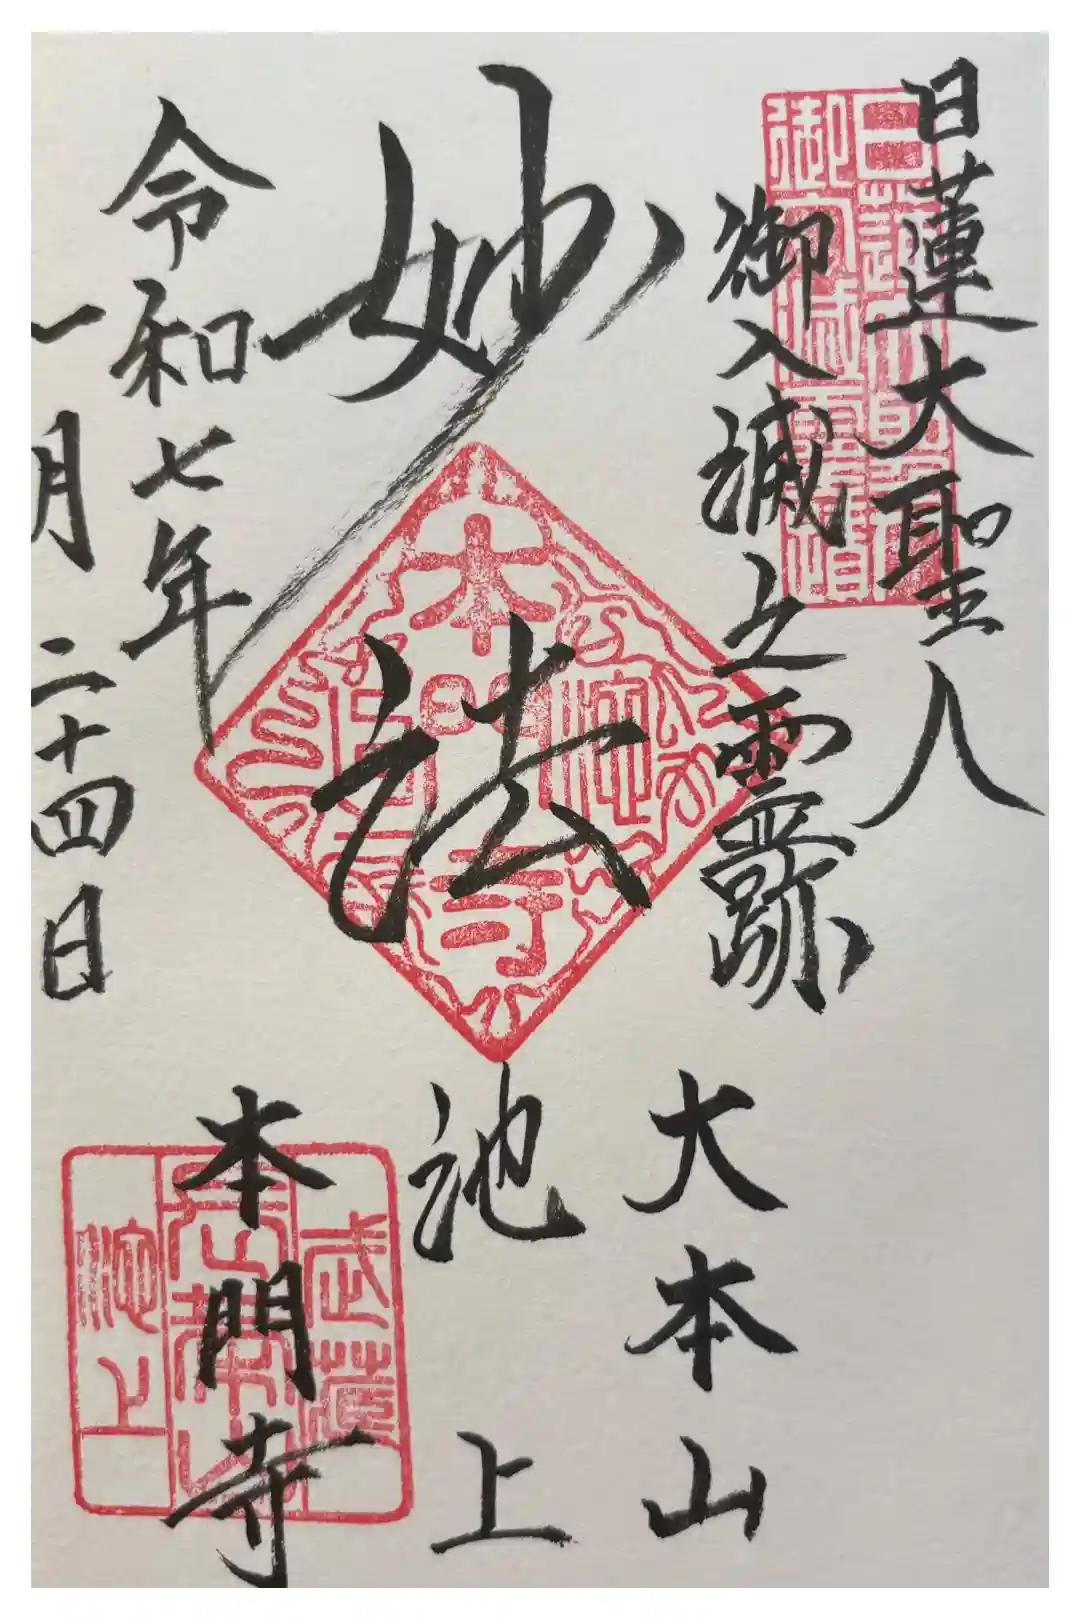 日蓮大聖人
御入滅之霊跡
妙法
大本山
池上
本門寺
令和七年
一月二十四日
日蓮大聖人
御入滅霊蹟
本門寺
池上
武蔵
池上